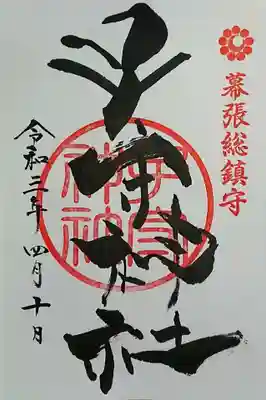 幕張総鎮守
子守神社
令和三年 四月十日